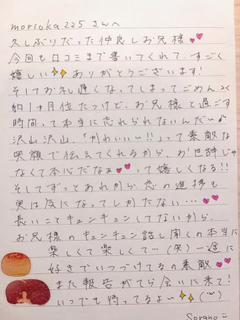 morioka225さんへ
久しぶりだった仲良しお兄様
今回も口コミまで書いてくれて、すごく
嬉しい ありがとうございます!
そしてお礼遅くなってしまってごめんね
約1ヶ月位たつけど、お兄様と過ごす
時間って本当に忘れられないんだ〜
沢山沢山、「かわいい〜!!」って素敵な
笑顔で伝えてくれるから、お世辞じゃ
なくて本心だなぁ って嬉しくなる!!
そしてずっとあれから恋の進捗も
実は気になってしかたない…
長いことキュンキュンしてないから、
お兄様のキュンキュン話し聞くの本当に
楽しくて楽しくて…(笑)一途に
好きでいつづけてるの素敵
また報告がてら会いに来て!
いつでも待ってるよ〜
Sorano